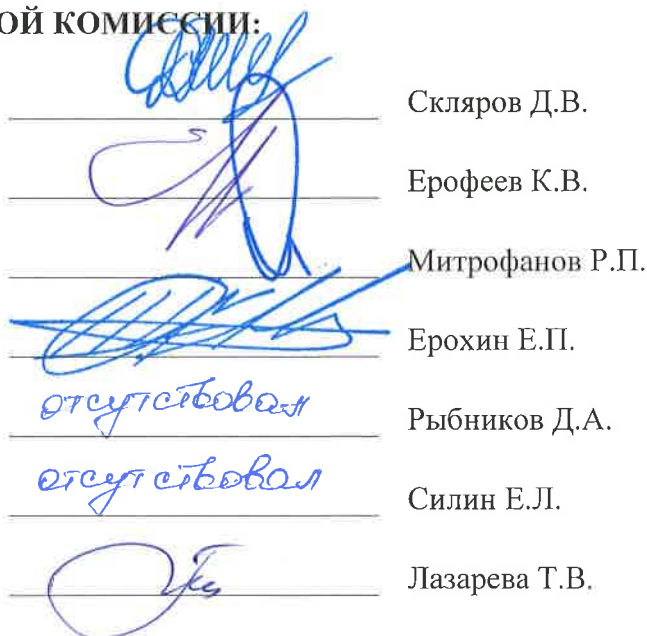 ОЙ КОМИССИИ:
Скляров Д.В.
Ерофеев К.В.
Митрофанов Р.П.
Ерохин Е.П.
отсутствовал Рыбников Д.А.
отсутствовал Силин Е.Л.
Лазарева Т.В.